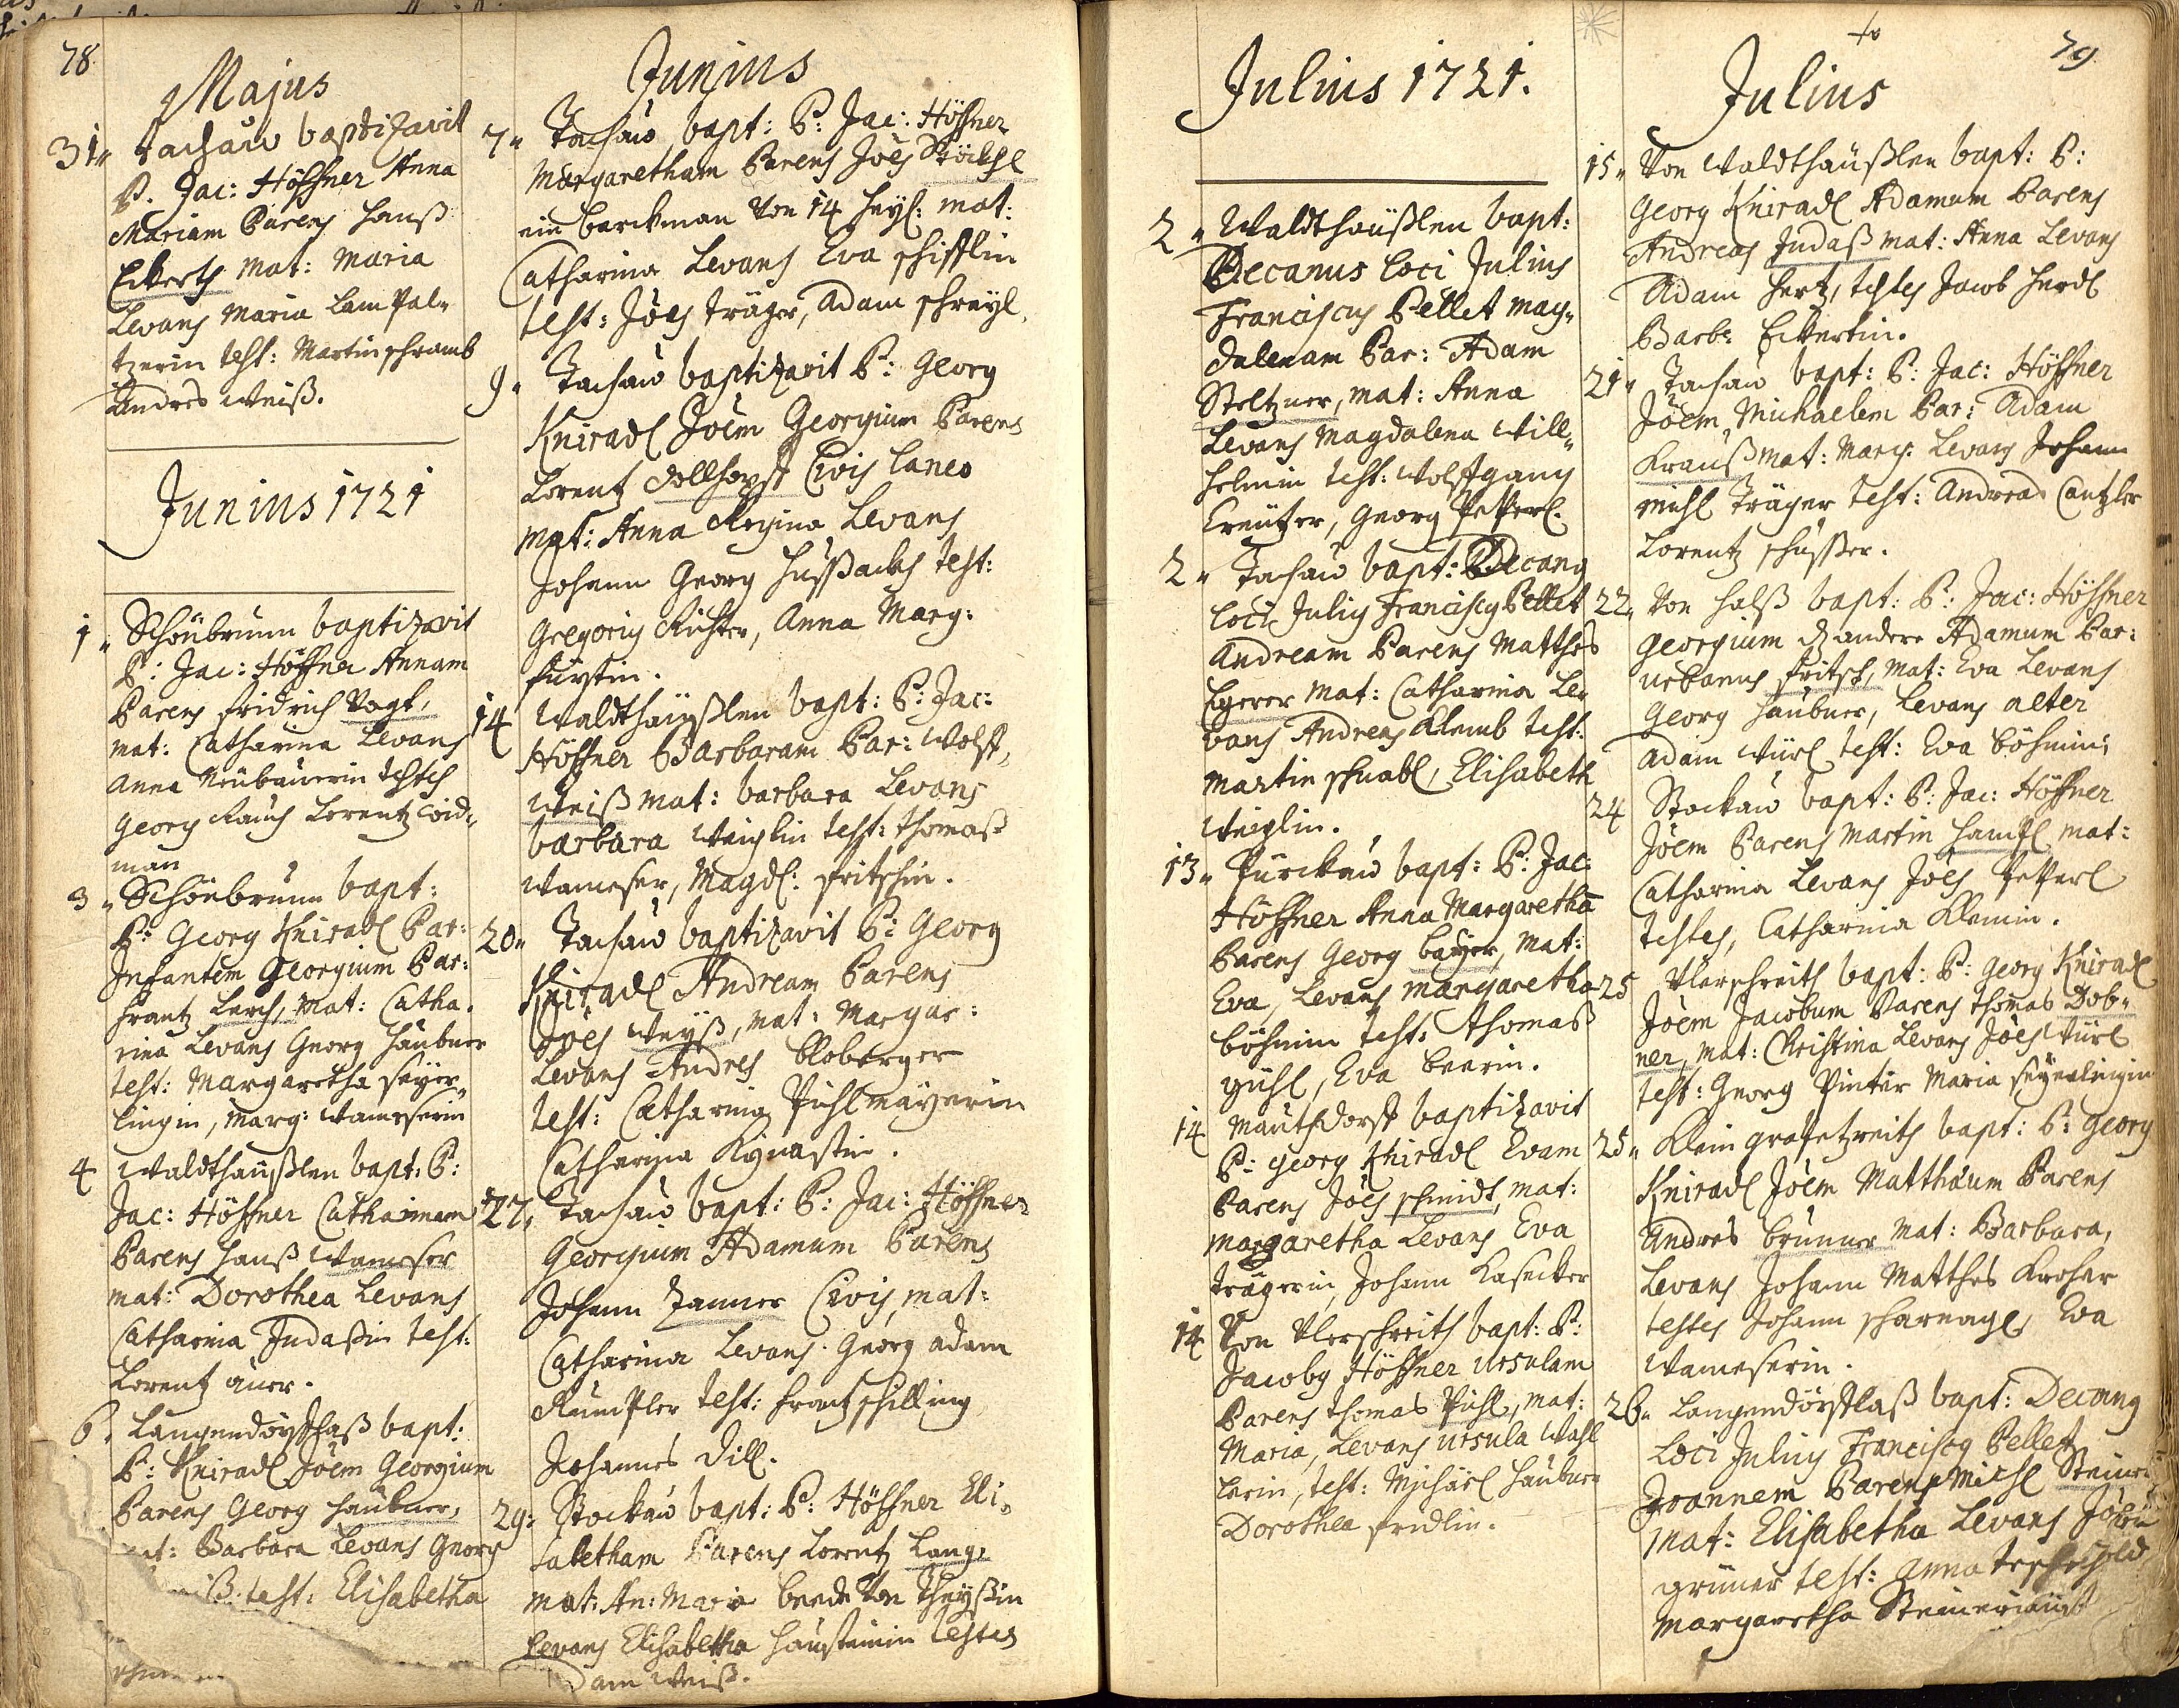 78.
Majus
31" Tachau baptizavit
P. Jac: Höffner Anna
Mariam Parens Hanß
Eckerth Mat: Maria
Levans Maria Lampal"
tzerin test: Martin schramb
Andres Weiß.
Junius 1721
1" Schönbrunn baptizavit
P: Jac: Höffner Annam
Parens Fridrich Vogt,
mat: Catharina Levans
Anna Neübauerin testes
Georg Rauch Lorentz Wid"
man
3" Schönbrunn bapt:
P: Georg Kniradl Par:
Infantem Georgium Par:
Frantz Lerch, Mat: Catha"
rina Levans Georg Haubner
test: Margaretha
lingin, Marg: Wameserin
4 Waldthaüßlen bapt: P:
Jac: Höffner Catharinam
Parens Hanß Wameser
mat: Dorothea Levans
Catharina Judaßin test:
Lorentz
6. Langendörflaß bapt:
P: Kniradl Joem Georgium
Parens Georg Haubner,
mat: Barbara Levans Georg
test: Elisabetha
Junius
7" Tachau bapt: P: Jac: Höffner
Margaretham Parens Joes Stöckhl
ein barckman Von 14 Heyl: mat:
Catharina Levans Eva schifflin
test: Joes Träger, Adam schreyl.
9" Tachau baptizavit P: Georg
Kniradl Joem Georgium Parens
Lorentz Dollhopf Civis Laneo
mat: Anna Regina Levans
Johann Georg test:
Gregorius Richter, Anna Marg:
fürstin.
14 Waldthaüßlen bapt: P: Jac:
Höffner Barbaram Par: Wolff,
Weiß mat: barbara Levans
barbara Weiglin test: Thomaß
Wameser, Magdl: Fritschin.
20" Tachau baptizavit P: Georg
Kniradl Andream Parens
Joes Weyß, mat: Margar:
Levans Andres bloberger
test: Catharina Pichlmayerin
Catharina Kynastin.
27, Tachau bapt: P: Jac: Höffner
Georgium Adamum Parens
Johann Zanner Civis, mat:
Catharina Levans. Georg Adam
Rumpler test: Frantz schilling
Johannes Dill.
29: Stockau bapt: P: Höffner Eli"
sabetham Parens Lorentz Lang,
mat: An: Maria beede Von Theyßin
Levans Elisabetha Haußteinin testes
Adam Weiß.
Julius 1721.
2" Waldthaüßlen bapt:
Decanus Loci Julius
Franciscus Pellet Mag"
dalenam Par: Adam
Steltzner, mat: Anna
Levans Magdalena Will"
helmin test: Wolffgang
Kreützer, Georg Pepperl.
2" Tachau bapt: Decanus
Loci Julius Franciscus Pellet
Andream Parens Matthes
Egerer mat: Catharina Le"
vans Andreas Klemb test:
Martin schnabl, Elisabeth
Weiglin.
13" Purckau bapt: P: Jac:
Höffner Anna Margaretha
Parens Georg bayer, mat:
Eva, Levans Margaretha
böhmin test: Thomaß
gühl, Eva bearin.
14 Mauthdorff baptizavit
P: Georg Kniradl Evam
Parens Joes schmidt, mat:
Margaretha Levans Eva
trägerin, Johann Kasecker
14 Von Ulerschreith bapt: P:
Jacobus Höffner Ursulam
Parens Thomas Pichl, mat:
Maria, Levans Ursula Wahl
lerin, test: Michael Haubner
Dorothea Fridlin.
79.
Julius
15" Von Waldthaüßlen bapt: P:
Georg Kniradl Adamum Parens
Andreas Judaß mat: Anna Levans
Adam Hertz, testes Jacob Hardl
Barb: Eckertin.
21" Tachau bapt: P: Jac: Höffner
Joem Michaelem Par: Adam
Krauß mat: Marg: Levans Johann
Michl Träger test: Andreas Cantzler
Lorentz schusser.
22" Von Halß bapt: P: Jac: Höffner
Georgium d andere Adamum Par:
Urbanus Fritsch, Mat: Eva Levans
Georg Haubner, Levans alter
Adam Würl test: Eva böhmin
24 Stockau bapt: P: Jac: Höffner
Joem Parens Martin Hampl mat:
Catharina Levans Joes Pepperl
testes, Catharina Klemin.
25 Ulerschreith bapt: P: Georg Kniradl
Joem Jacobum Parens Thomas Dob"
ner, mat: Christina Levans Joes Würl
test: Georg Pinter Maria
25" Klein gropetzreith bapt: P: Georg
Kniradl Joem Matthäum Parens
Andres brunner mat: Barbara,
Levans Johann Matthes Kroher
testes Johann scharnagl, Eva
Wameserin.
26" Langendörflaß bapt: Decanus
Loci Julius Franciscus Pellet
Joannem Parens Michl Steiner
Mat: Elisabetha Levans
gruner test: Anna
Margaretha